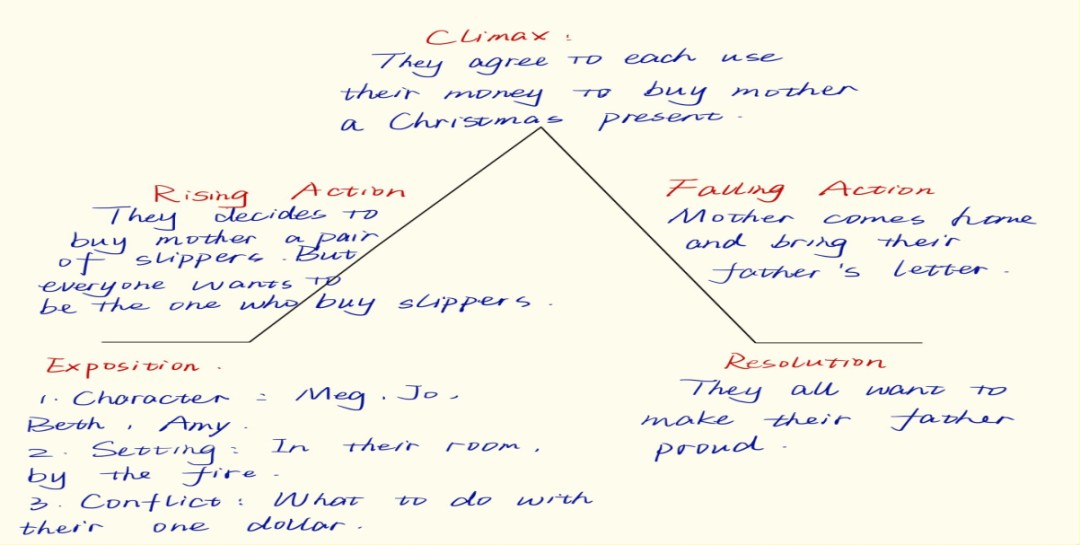 Climax :
They agree to each use
their money to buy mother
a Christmas present .
Rising Action
They decides to
buy mother a pair
of slippers . But
everyone wants to
be the one who buy slippers .
Falling Action
Mother comes home
and bring their
father's letter .
Exposition .
1. Character : Meg . Jo .
Beth , Amy .
2. Setting : In their room ,
by the fire .
3. Conflict : What to do with
their one dollar .
Resolution
They all want to
make their father
proud .